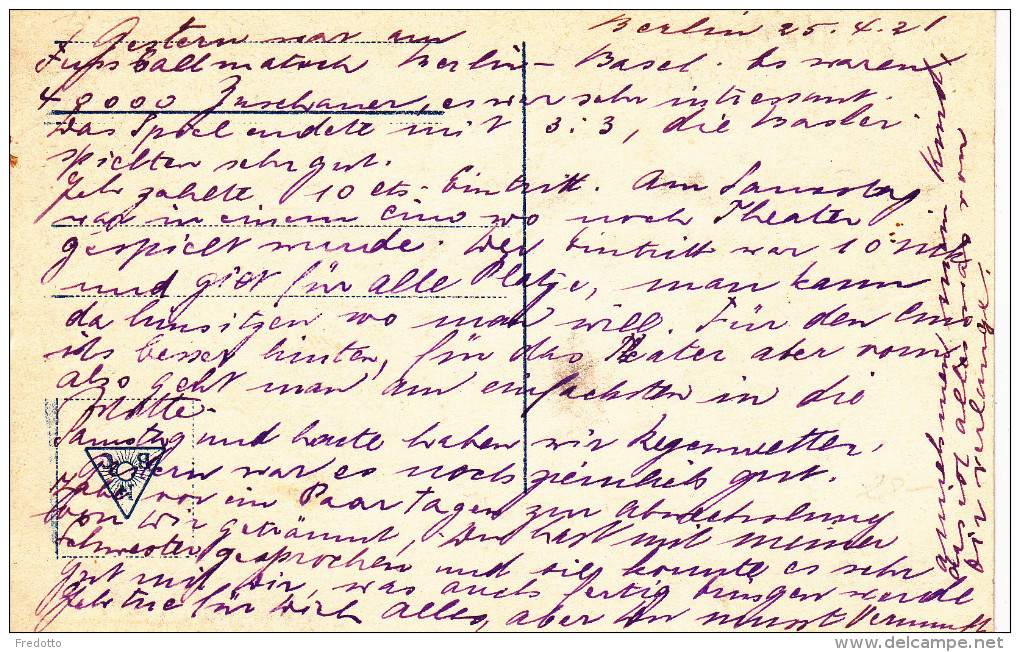 Berlin 25.4.21
Gestern war am
Fussballmatch Berlin-Basel. Es waren
48000 Zuschauer, es war sehr intressant.
Das Spiel endete mit 3:3, die Basler
spielten sehr gut.
Ich zahlte 10 cts. Eintritt. Am Samstag
war in einem Cino wo noch Theater
gespielt wurde. Der Eintritt war 10 M
und gibt für alle Plätze, man kann
da hinsitzen wo man will. Für den Cino
ists besser hinten, für das Theater aber vorn
also geht man am einfachsten in die
Mitte.
Samstag und heute haben wir Regenwetter,
gestern war es noch ziemlich gut.
Habe vor ein Paar Tagen zur Abwechslung
von Dir geträumt, Du hast mit meiner
Schwester gesprochen und sie konnte es sehr
gut mit Dir, was auch fertig bringen werde
Ich tue für Dich Alles, aber Du musst Vernunft
annehmen mein Kind
das ist alles was von
Dir verlange.
Fredotto
www.delcampe.net